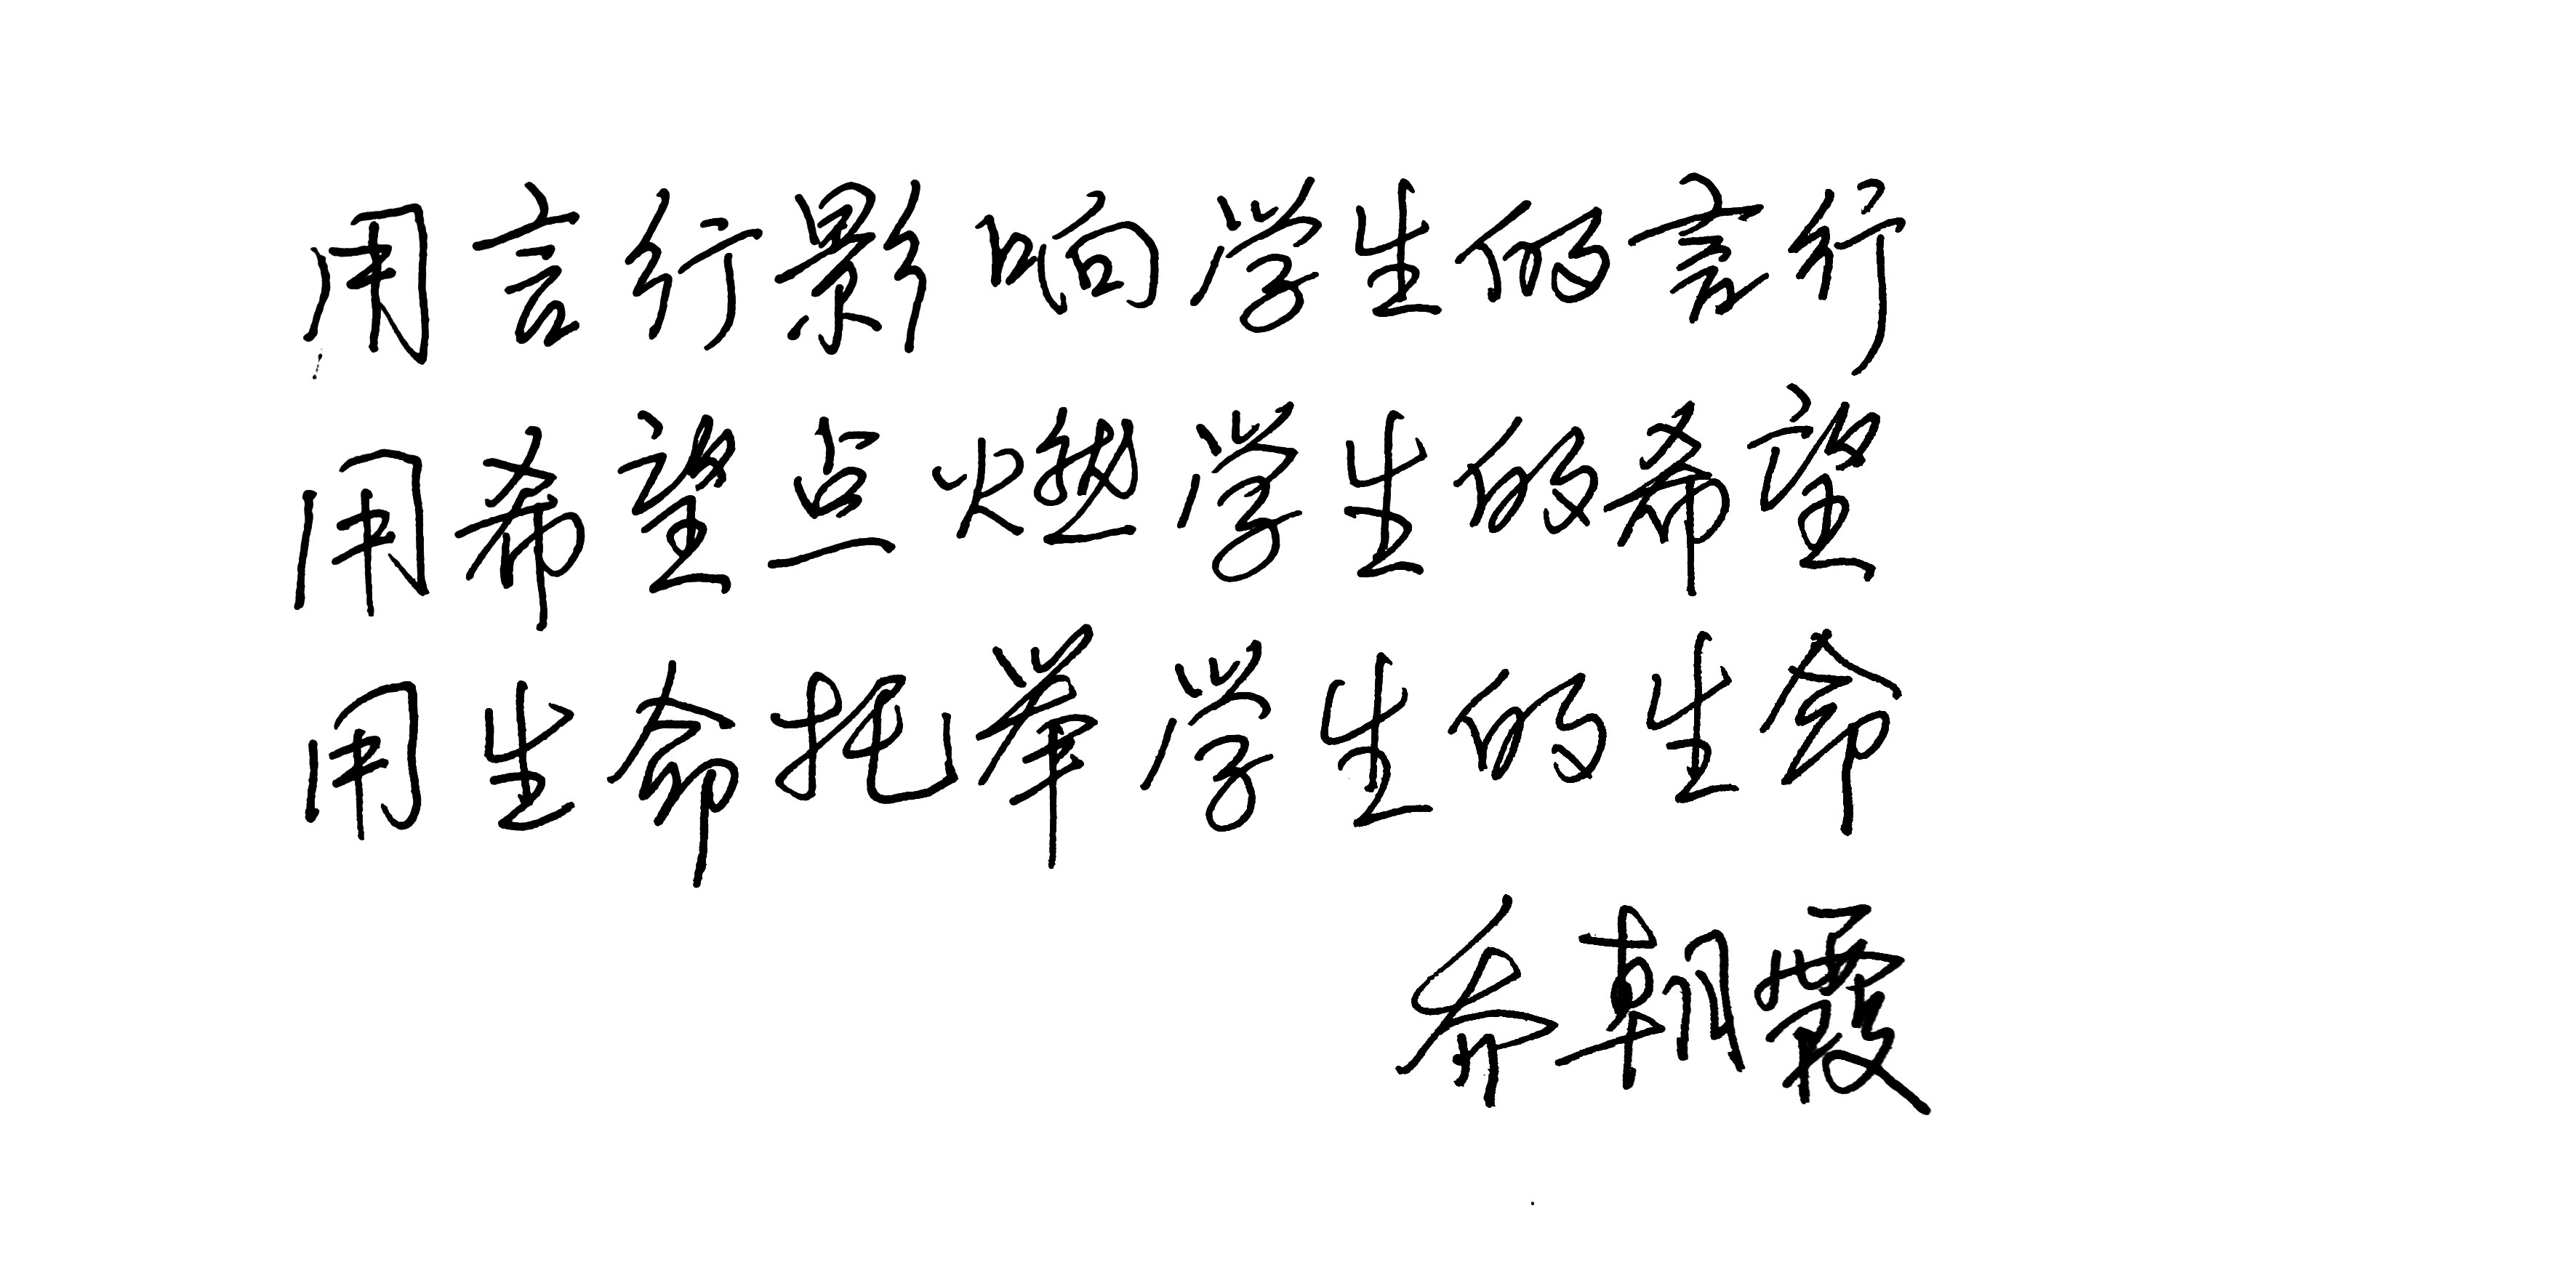 用言行影响学生的言行
用希望点燃学生的希望
用生命托举学生的生命
乔朝霞